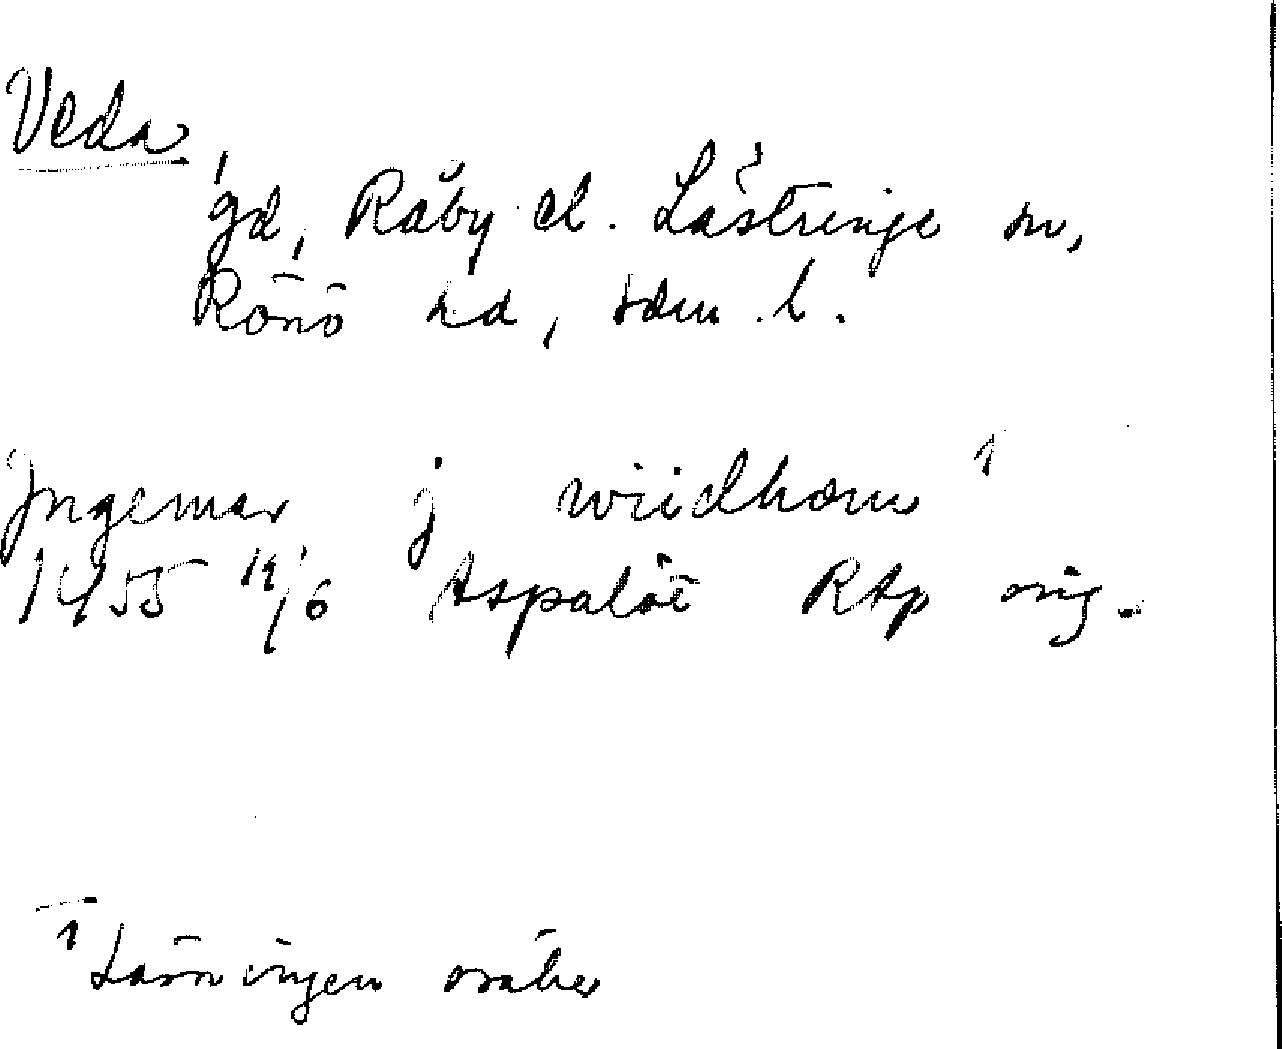 Veda
gd, Råby el. Lästringe sn,
Rönö hd, Södm. l.
Ingemar j wiidhærn 1
1455 19/6 Aspaløt RAp orig.
1 Läsningen osäker